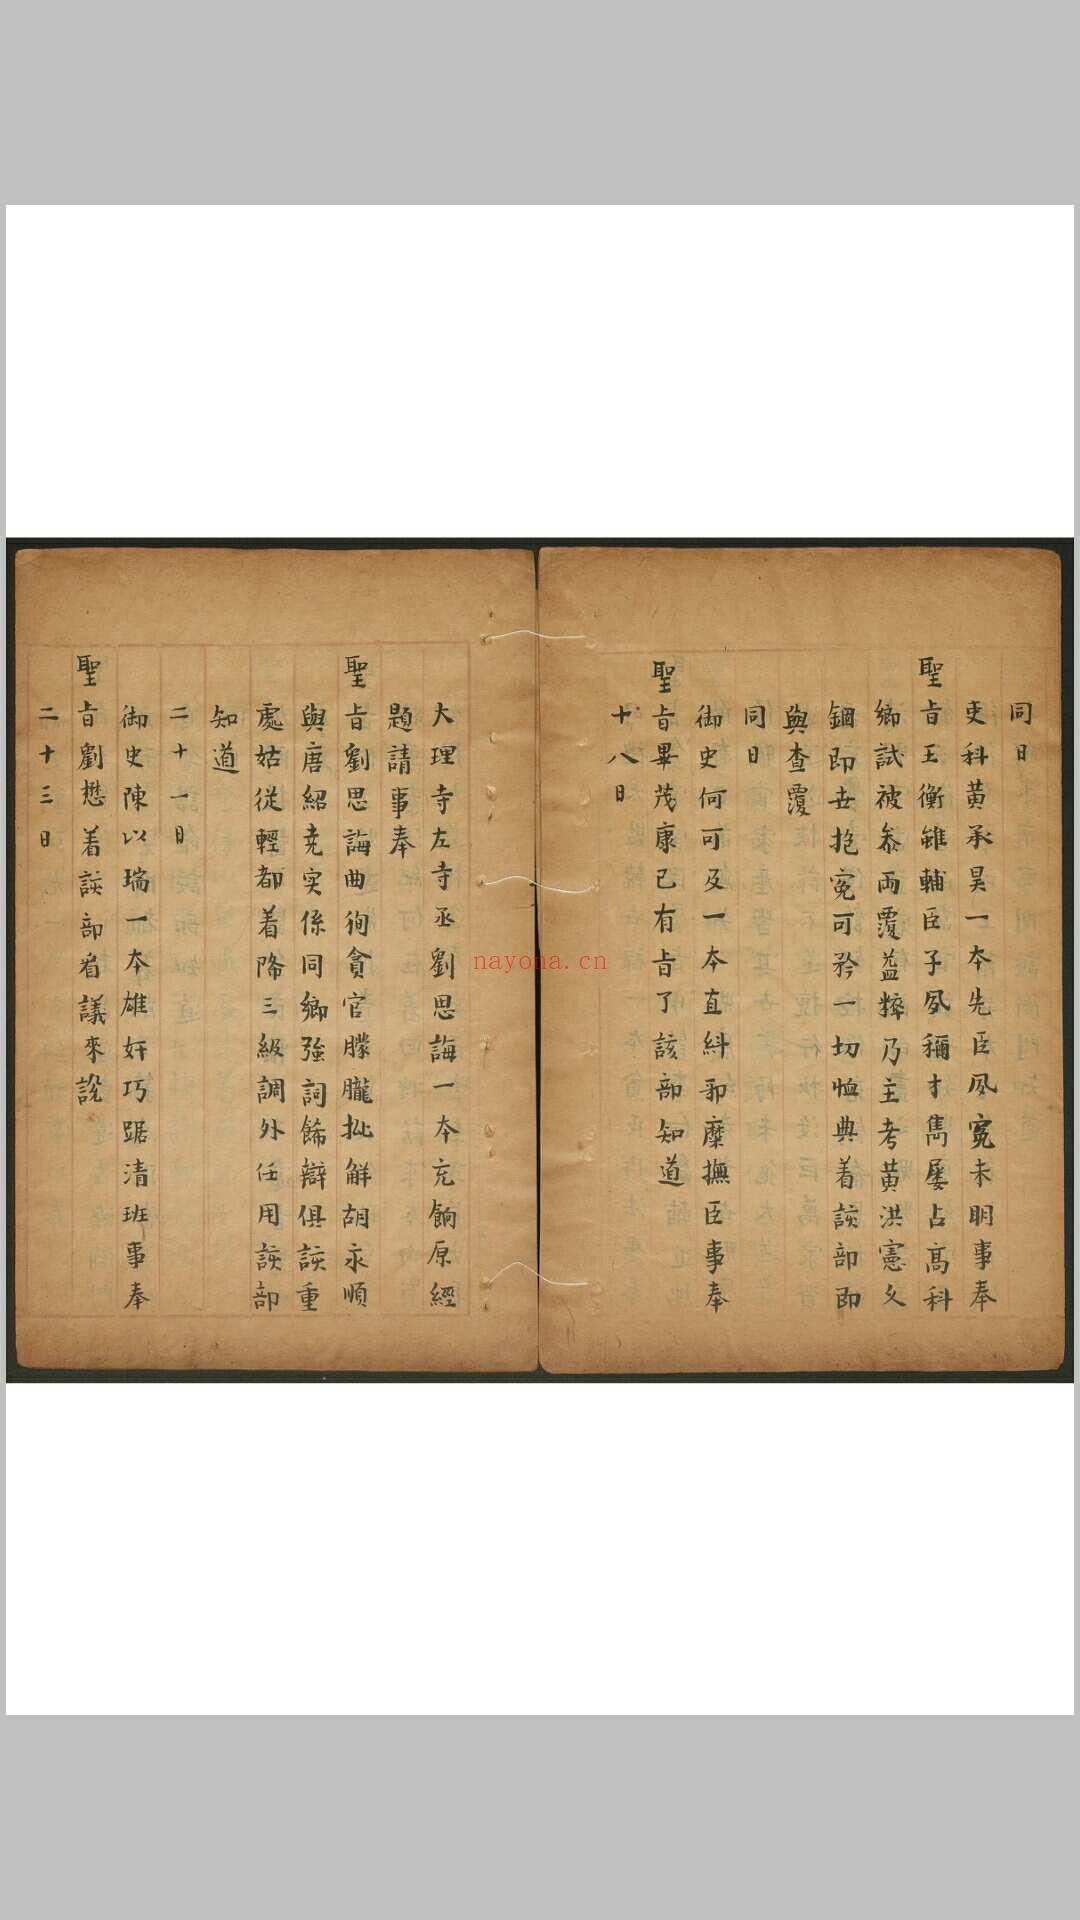 同日
吏科黄承昊一本先臣夙寃未明事奉
聖旨王衡雖輔臣子夙稱才雋屡占髙科
鄉試被叅両覆益粹乃主考黄洪憲乆
錮即世抱寃可矜一切恤典着該部即
與查覆
同日
御史何可及一本直糾邪糜撫臣事奉
聖旨畢茂康已有旨了該部知道
十八日
大理寺左寺丞劉思誨一本充餉原經
題請事奉
聖旨劉思誨曲徇貪官朦朧批解胡永順
與唐紹尭实係同鄉強詞餙辯俱該重
處姑從輕都着降三級調外任用該部
知道
二十一日
御史陳以瑞一本雄奸巧踞清班事奉
聖旨劉懋着該部看議來説
二十三日
nayona.cn